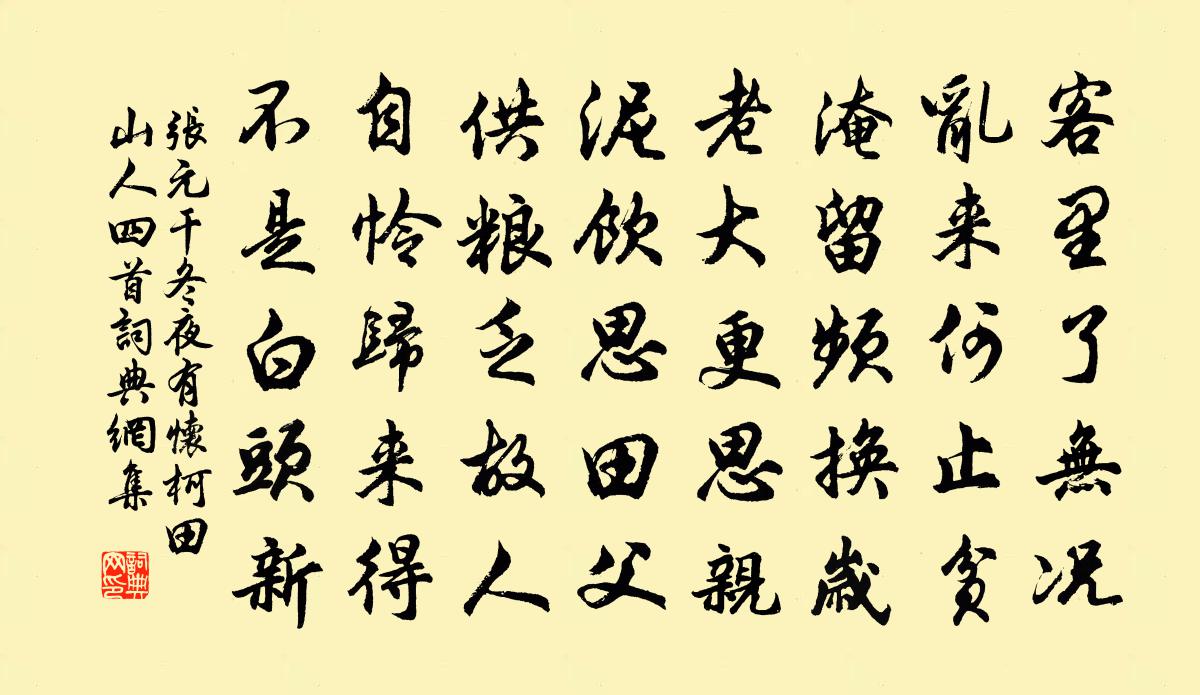 客里了無况
亂来何止貧
淹留頻换歲
老大更思親
泥飲思田父
供粮乏故人
自怜歸来得
不是白頭新
張元干冬夜有懷柯田
山人四首詞典網集
詞典
网印